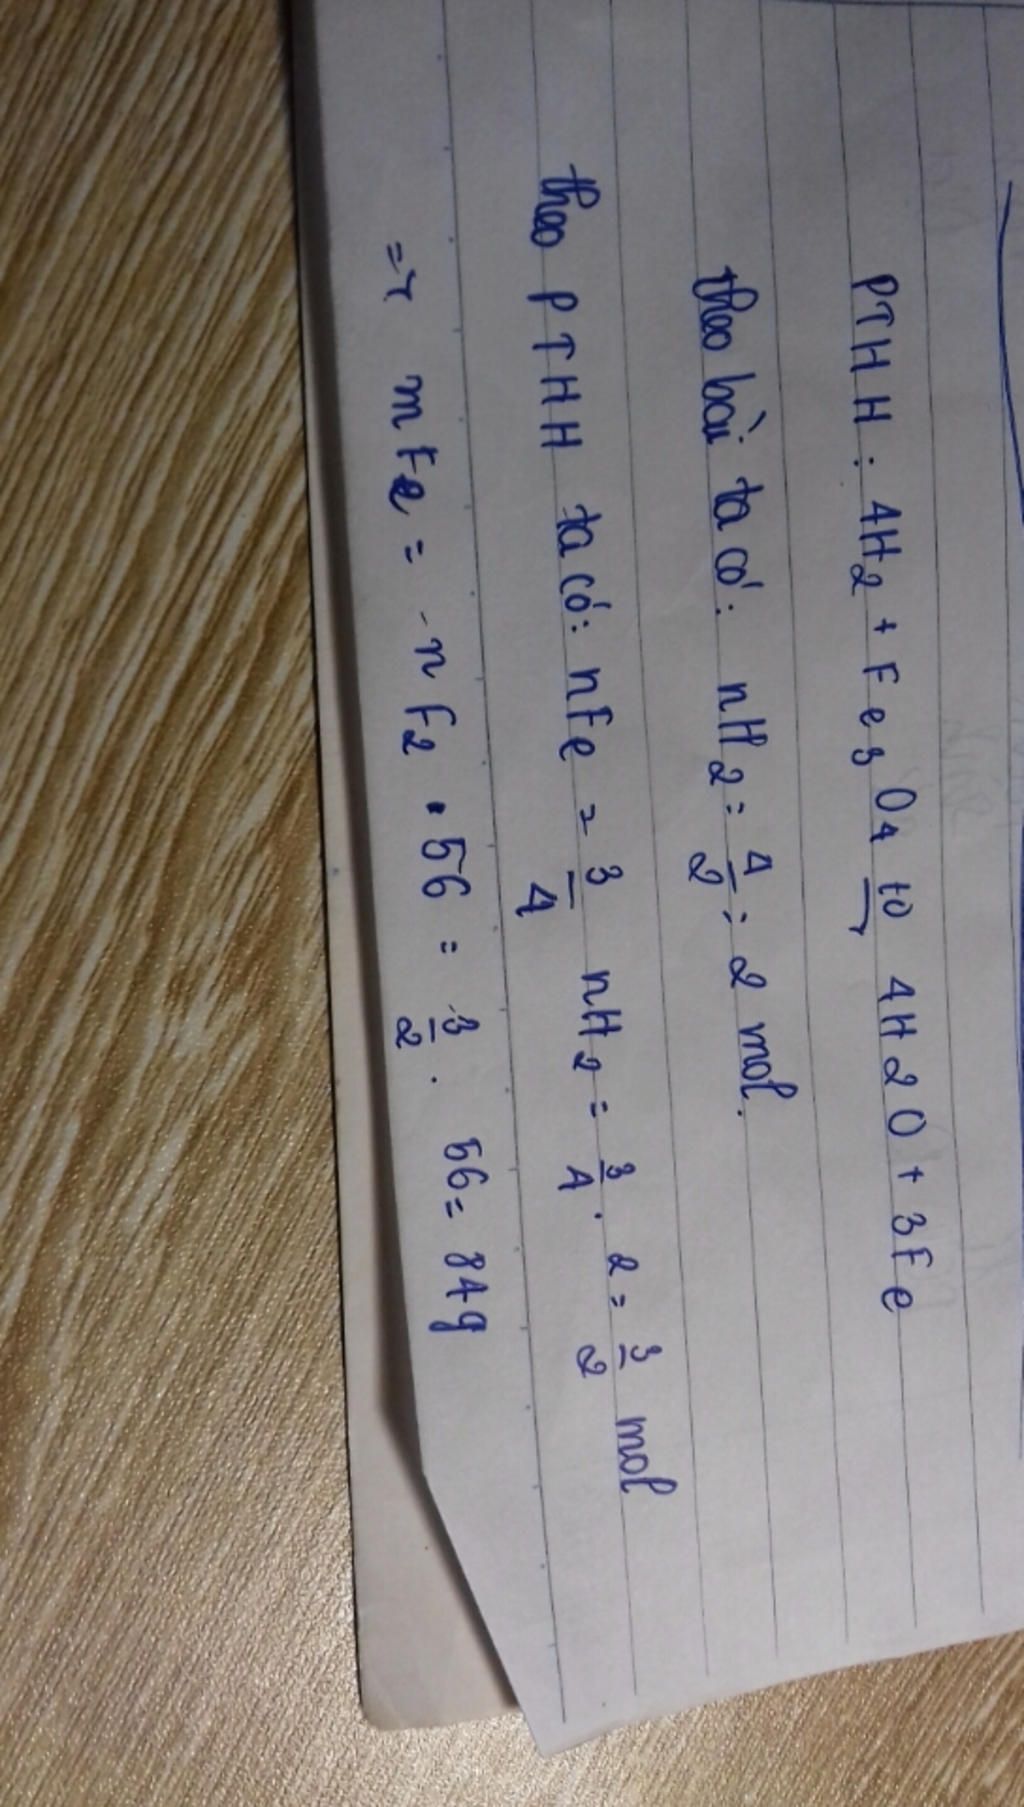 PTHH: 4H2 + Fe3O4 to→ 4H2O + 3Fe
theo bài ta có: nH2 = 4/2 = 2 mol.
theo PTHH ta có: nFe = 3/4 nH2 = 3/4 . 2 = 3/2 mol
=> mFe = nF2 . 56 = 3/2 . 56 = 84g